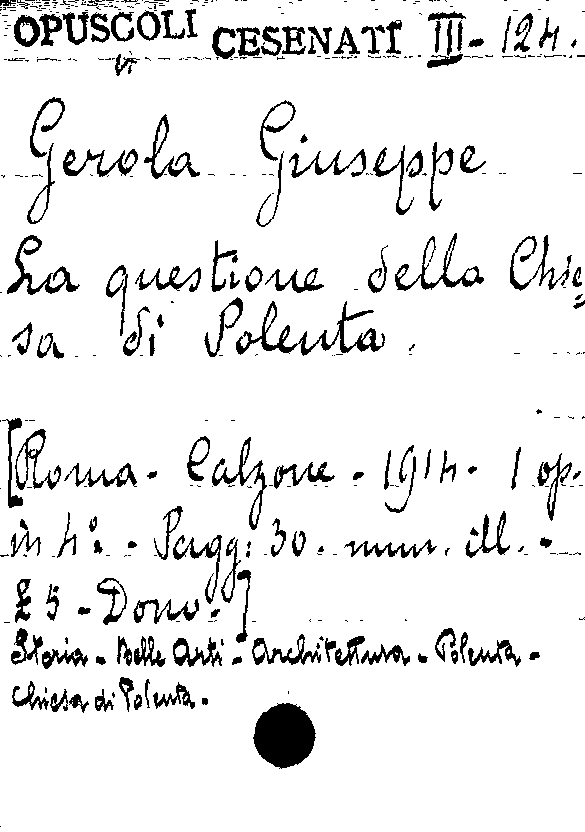 OPUSCOLI CESENATI III - 124.
Gerola Giuseppe
La questione della Chie=
sa di Polenta.
[Roma - Calzone - 1914 - 1 op.
in 4° - Pagg: 30. num. ill. -
£ 5 - Dono.]
Storia - Belle Arti - Architettura - Polenta -
Chiesa di Polenta.